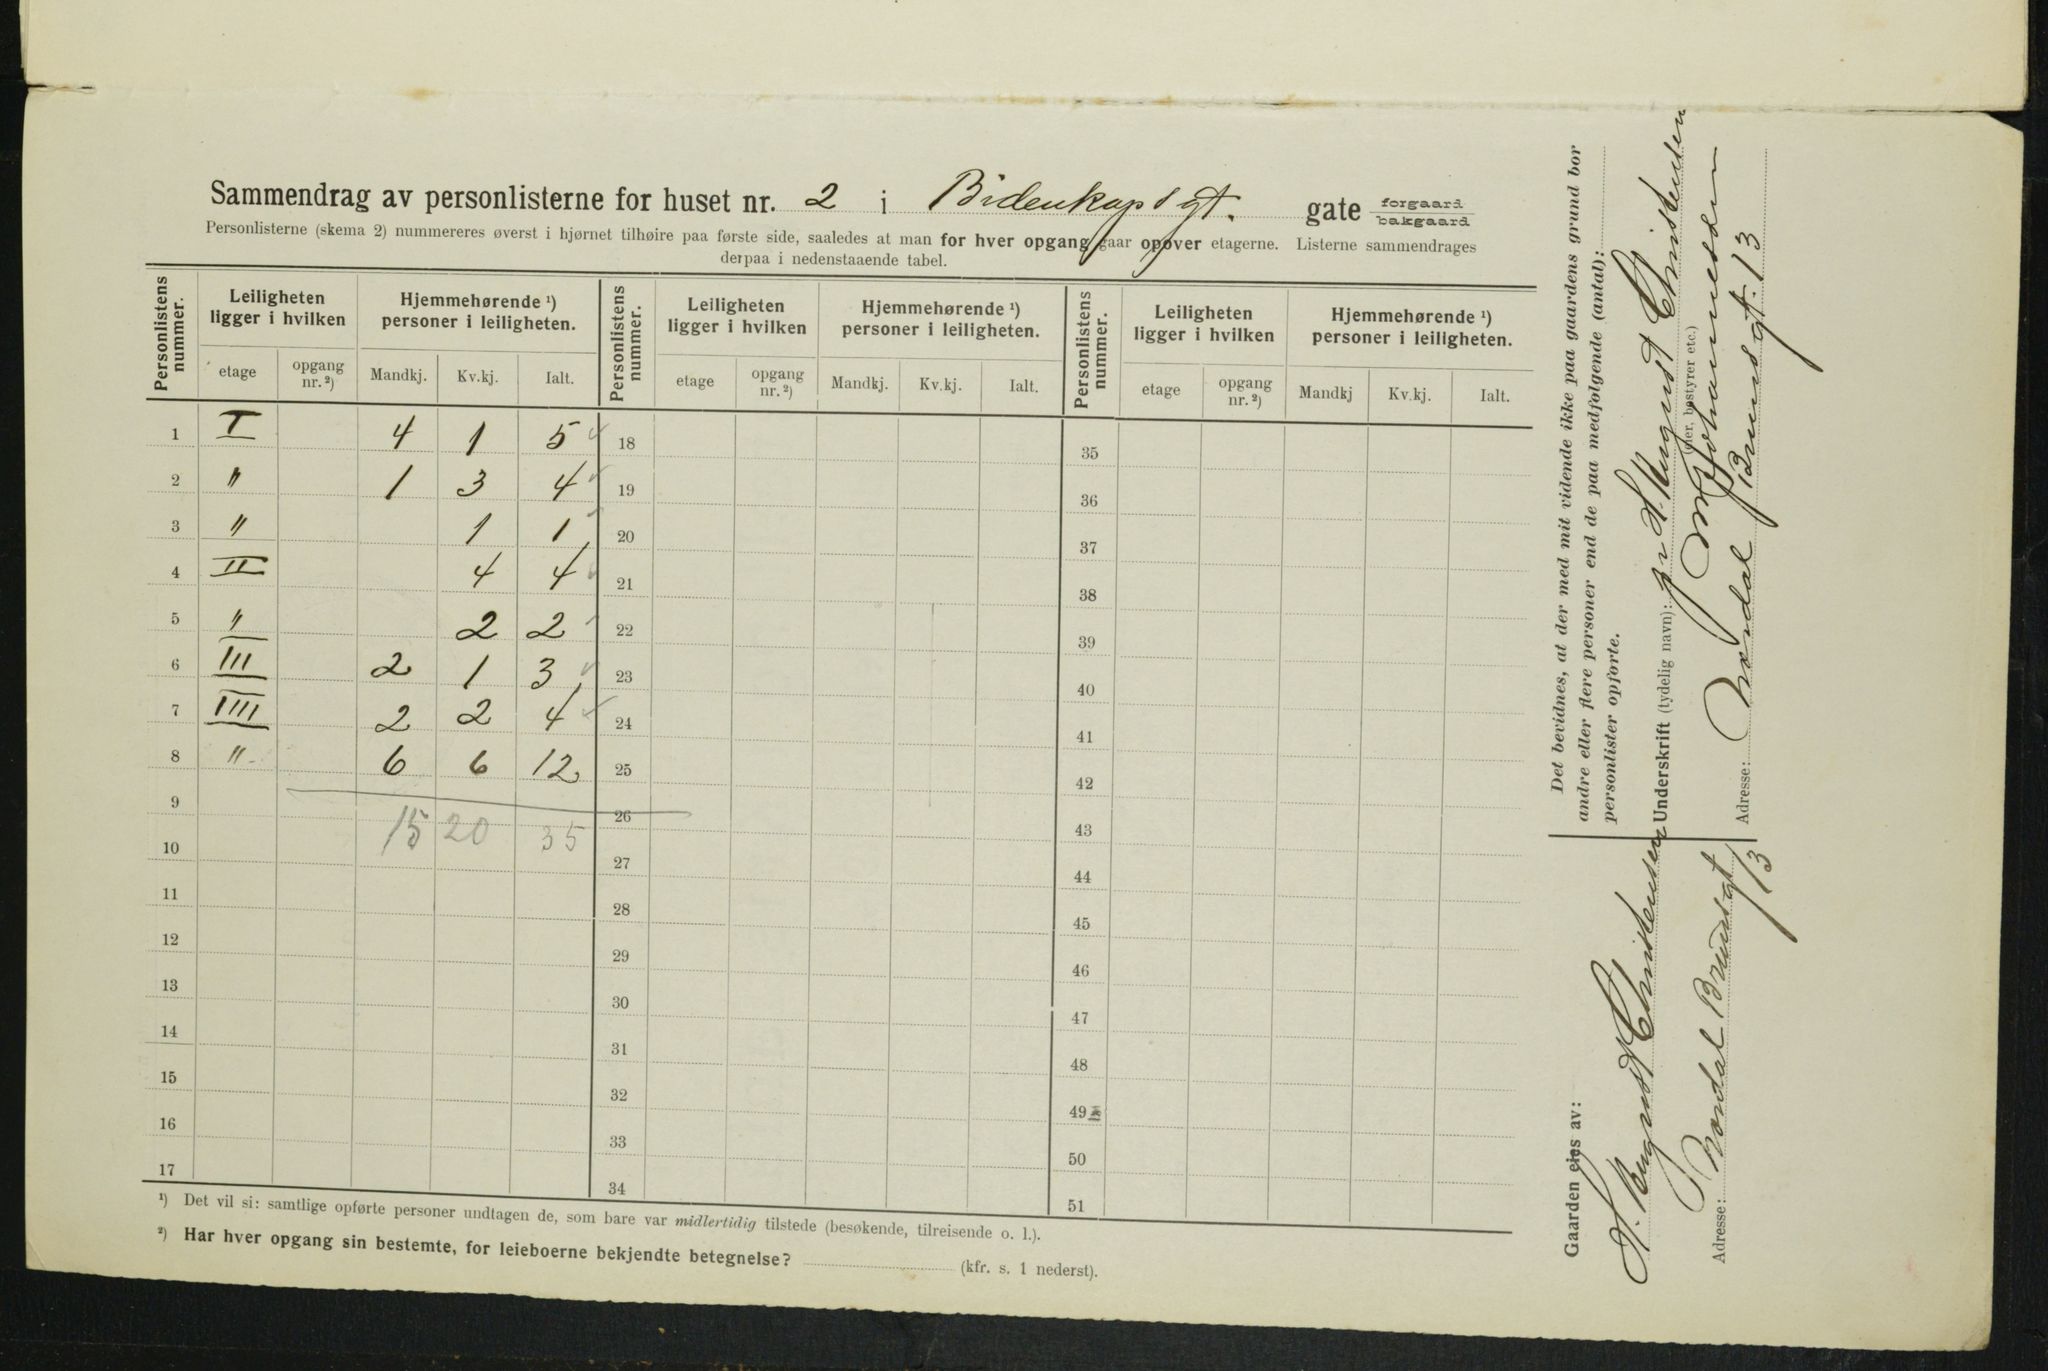 Sammendrag av personlisterne for huset nr. 2 i Bidenkaps gt. gate forgaard bakgaard
Personlisterne (skema 2) nummereres øverst i hjørnet tilhøire paa første side, saaledes at man for hver opgang gaar opover etagerne. Listerne sammendrages
derpaa i nedenstaaende tabel.
Personlistens nummer. Leiligheten ligger i hvilken Hjemmehørende ¹) personer i leiligheten. Personlistens nummer. Leiligheten ligger i hvilken Hjemmehørende ¹) personer i leiligheten. Personlistens nummer. Leiligheten ligger i hvilken Hjemmehørende ¹) personer i leiligheten.
etage opgang nr. ²) Mandkj. Kv.kj. Ialt. etage opgang nr. ²) Mandkj. Kv.kj. Ialt. etage opgang nr. ²) Mandkj Kv.kj. Ialt.
1 I 4 1 5 18 35
2 " 1 3 4 19 36
3 " 1 1 20 37
4 II 4 4 21 38
5 " 2 2 22 39
6 III 2 1 3 23 40
7 IIII 2 2 4 24 41
8 " 6 6 12 25 42
9 26 43
15 20 35
10 27 44
11 28 45
12 29 46
13 30 47
14 31 48
15 32 49
16 33 50
17 34 51
¹) Det vil si: samtlige opførte personer undtagen de, som bare var midlertidig tilstede (besøkende, tilreisende o. l.).
²) Har hver opgang sin bestemte, for leieboerne bekjendte betegnelse? (kfr. s. 1 nederst).
Det bevidnes, at der med mit vidende ikke paa gaardens grund bor
andre eller flere personer end de paa medfølgende (antal):
personlister opførte.
Underskrift (tydelig navn): H. August Christensen
(eier, bestyrer etc.)
Johannessen
Adresse: Nordal Brunsgt. 13
Gaarden eies av:
H. August Christensen
Adresse: Nordal Brunsgt
13